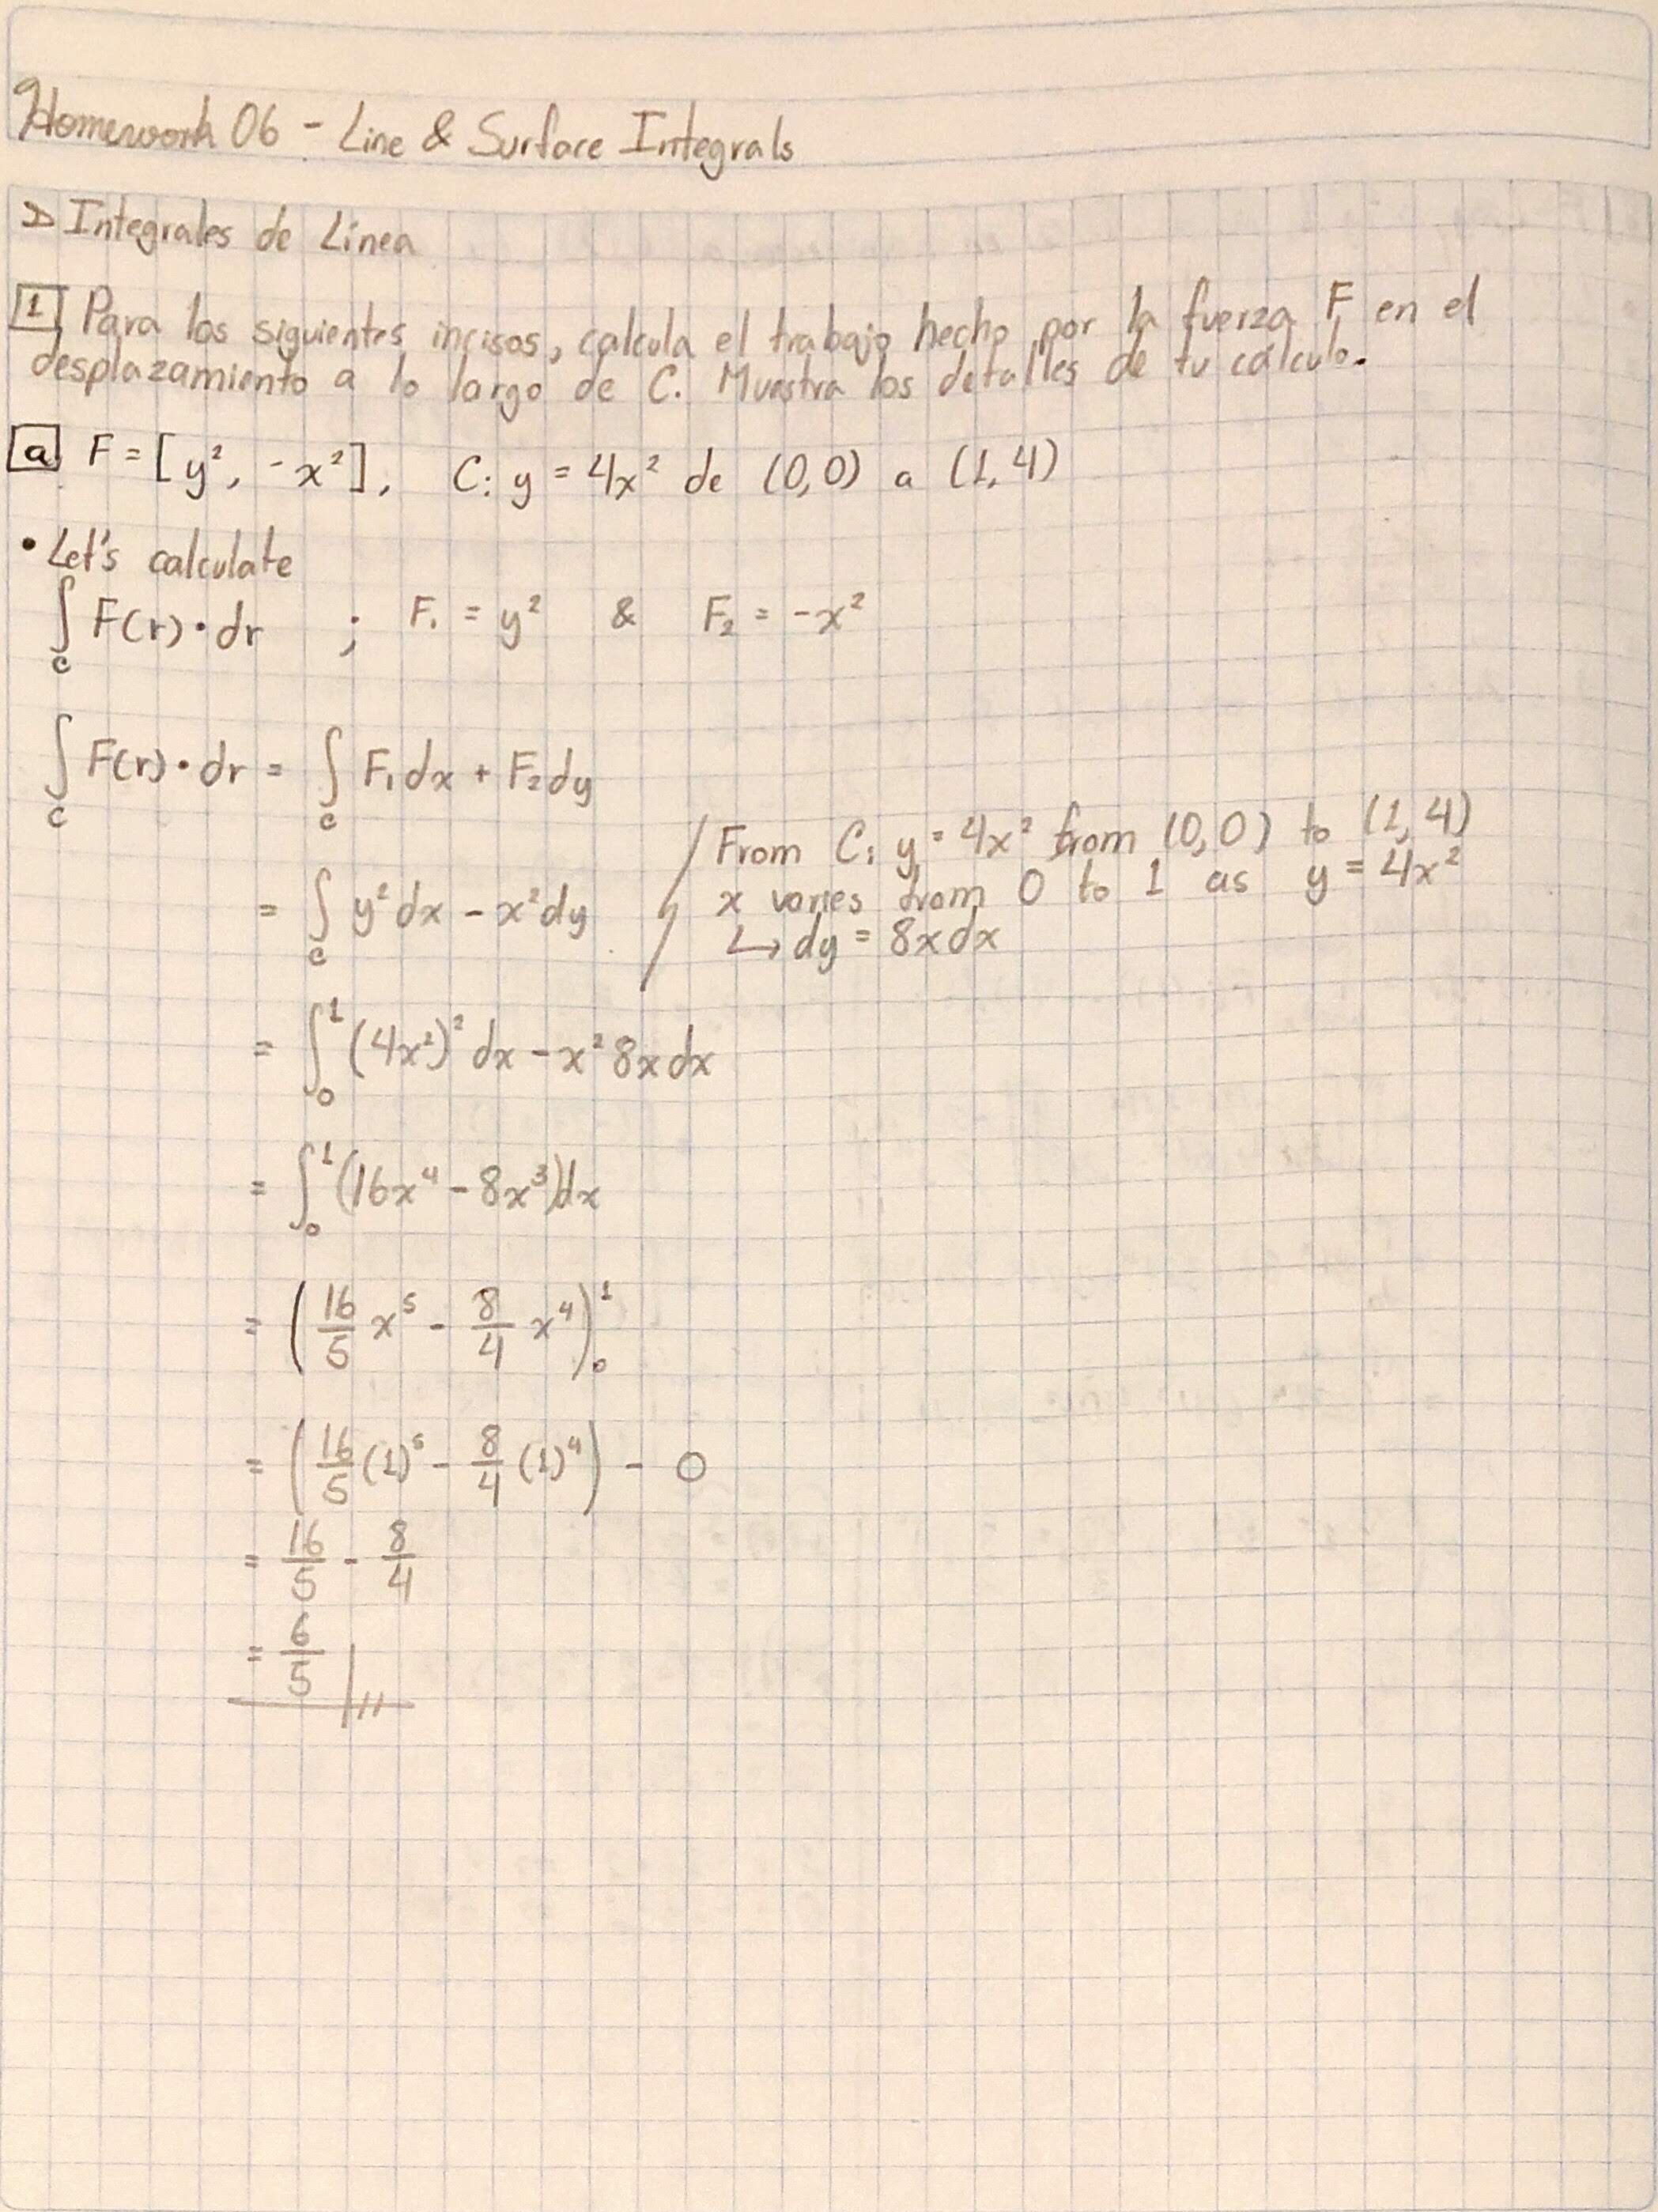 Homework 06 - Line & Surface Integrals
▷ Integrales de Línea
1 Para los siguientes incisos, calcula el trabajo hecho por la fuerza F en el
desplazamiento a lo largo de C. Muestra los detalles de tu cálculo.
a F = [y², -x²], C: y = 4x² de (0,0) a (1,4)
• Let's calculate
∫_C F(r)•dr ; F₁ = y² & F₂ = -x²
∫_C F(r)•dr = ∫_C F₁dx + F₂dy
= ∫_C y²dx - x²dy
/ From C: y = 4x² from (0,0) to (1,4)
x varies from 0 to 1 as y = 4x²
↳ dy = 8xdx
= ∫₀¹ (4x²)² dx - x² 8x dx
= ∫₀¹ (16x⁴ - 8x³)dx
= (16/5 x⁵ - 8/4 x⁴)₀¹
= (16/5 (1)⁵ - 8/4 (1)⁴) - 0
= 16/5 - 8/4
= 6/5